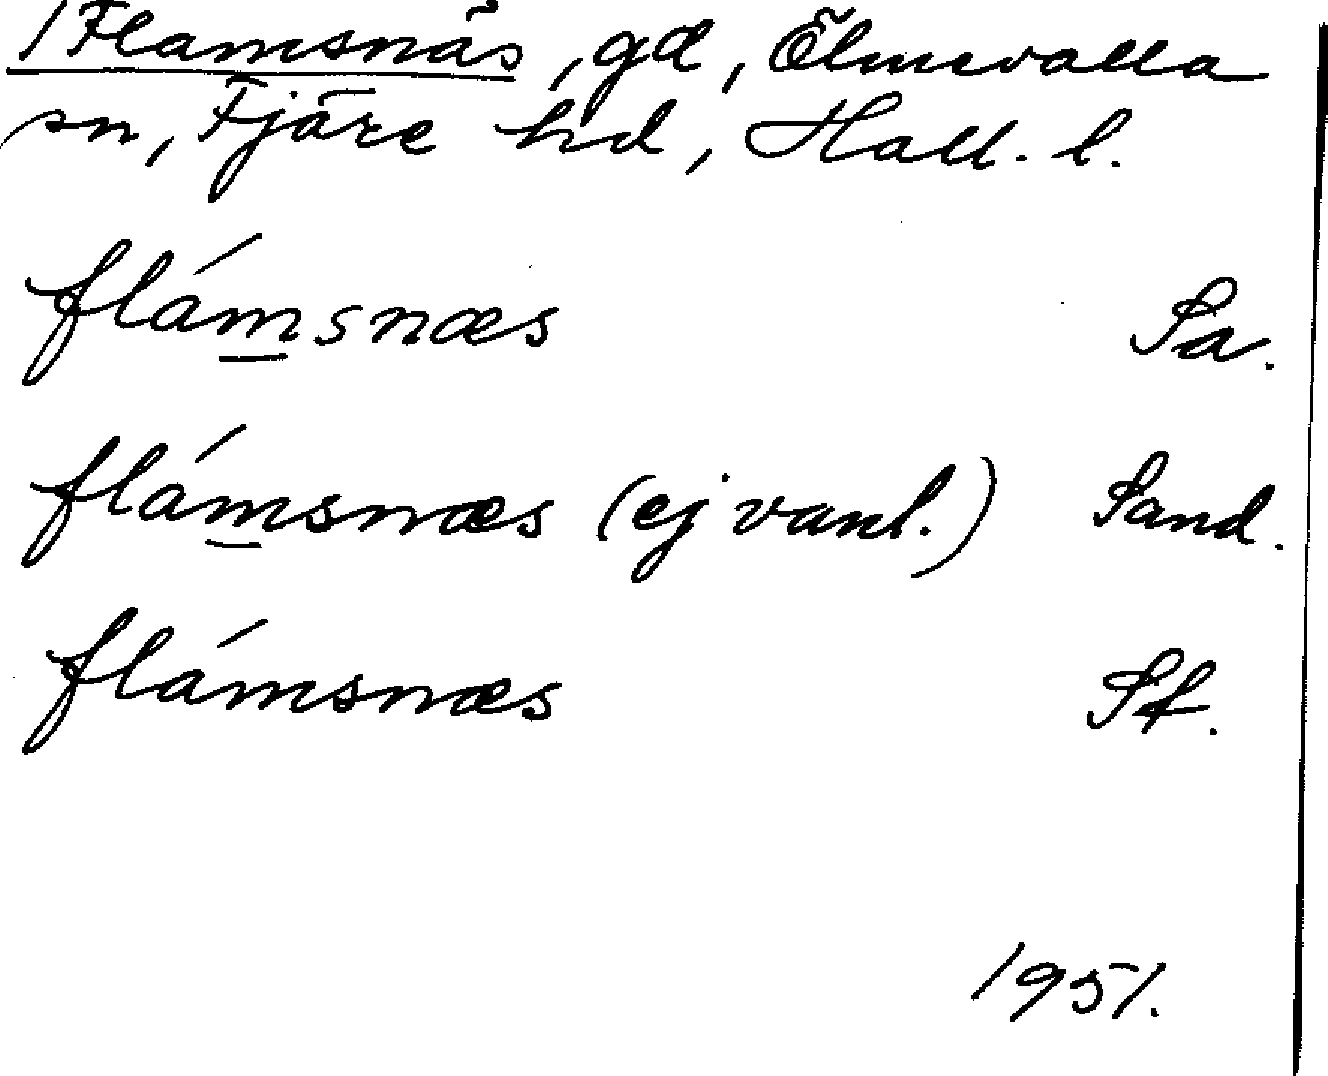 /Flamsnäs, gd, Ölmevalla
sn, Fjäre hd, Hall. l.
flámsnæs Sa.
flámsnæs (ej vanl.) Sand.
flámsnæs Sf.
1951.